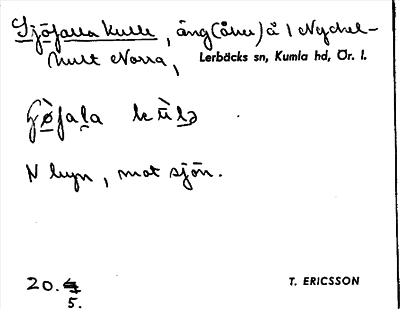 Sjöfalla kulle, äng (åker) å 1 Nyckel-
hult Norra, Lerbäcks sn, Kumla hd, Ör. l.
N byn, mot sjön.
20.4
5.
T. ERICSSON